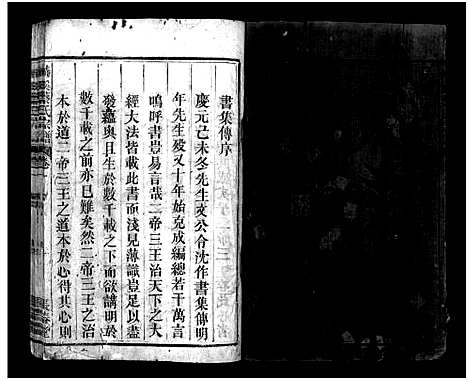 書集傳序
慶元己未冬先生文公令沈作書集傳明
年先生殁又十年始克成編總若干萬言
嗚呼書豈易言哉二帝三王治天下之大
經大法皆載此書而淺見薄識豈足以盡
發蘊奧且生於數千載之下而欲講明於
數千載之前亦已難矣然二帝三王之治
本於道二帝三王之道本於心得其心則